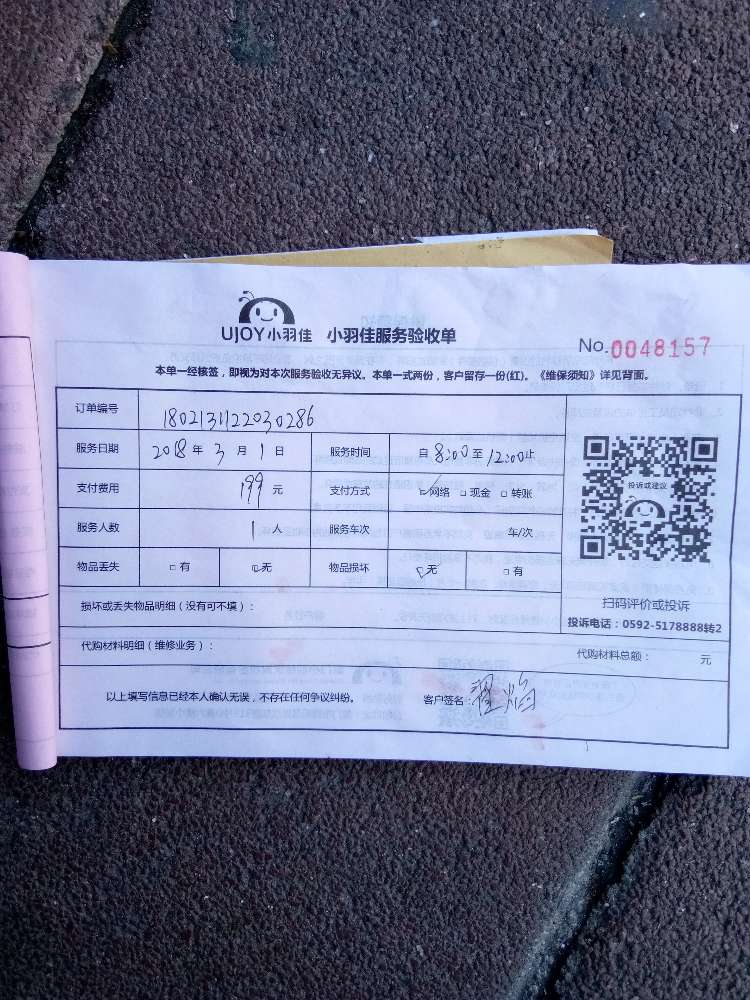 UJOY小羽佳 小羽佳服务验收单
No.0048157
本单一经核签，即视为对本次服务验收无异议。本单一式两份，客户留存一份(红)。《维保须知》详见背面。
订单编号 1802131122030286
服务日期 2018年3月1日 服务时间 自8:00至12:00止
支付费用 199元 支付方式 ☑网络 □现金 □转账
服务人数 1人 服务车次 车/次
物品丢失 □有 ☑无 物品损坏 ☑无 □有
投诉或建议
扫码评价或投诉
投诉电话：0592-5178888转2
损坏或丢失物品明细（没有可不填）：
代购材料明细（维修业务）： 代购材料总额： 元
以上填写信息已经本人确认无误，不存在任何争议纠纷。 客户签名：